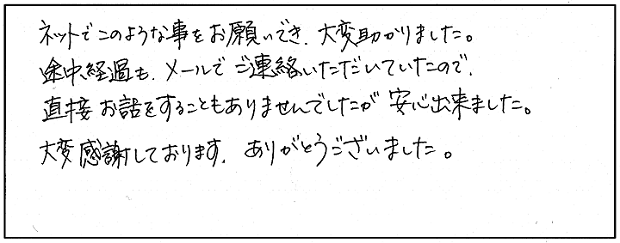 ネットでこのような事をお願いでき、大変助かりました。
途中経過も、メールでご連絡いただいていたので、
直接お話をすることもありませんでしたが安心出来ました。
大変感謝しております。ありがとうございました。